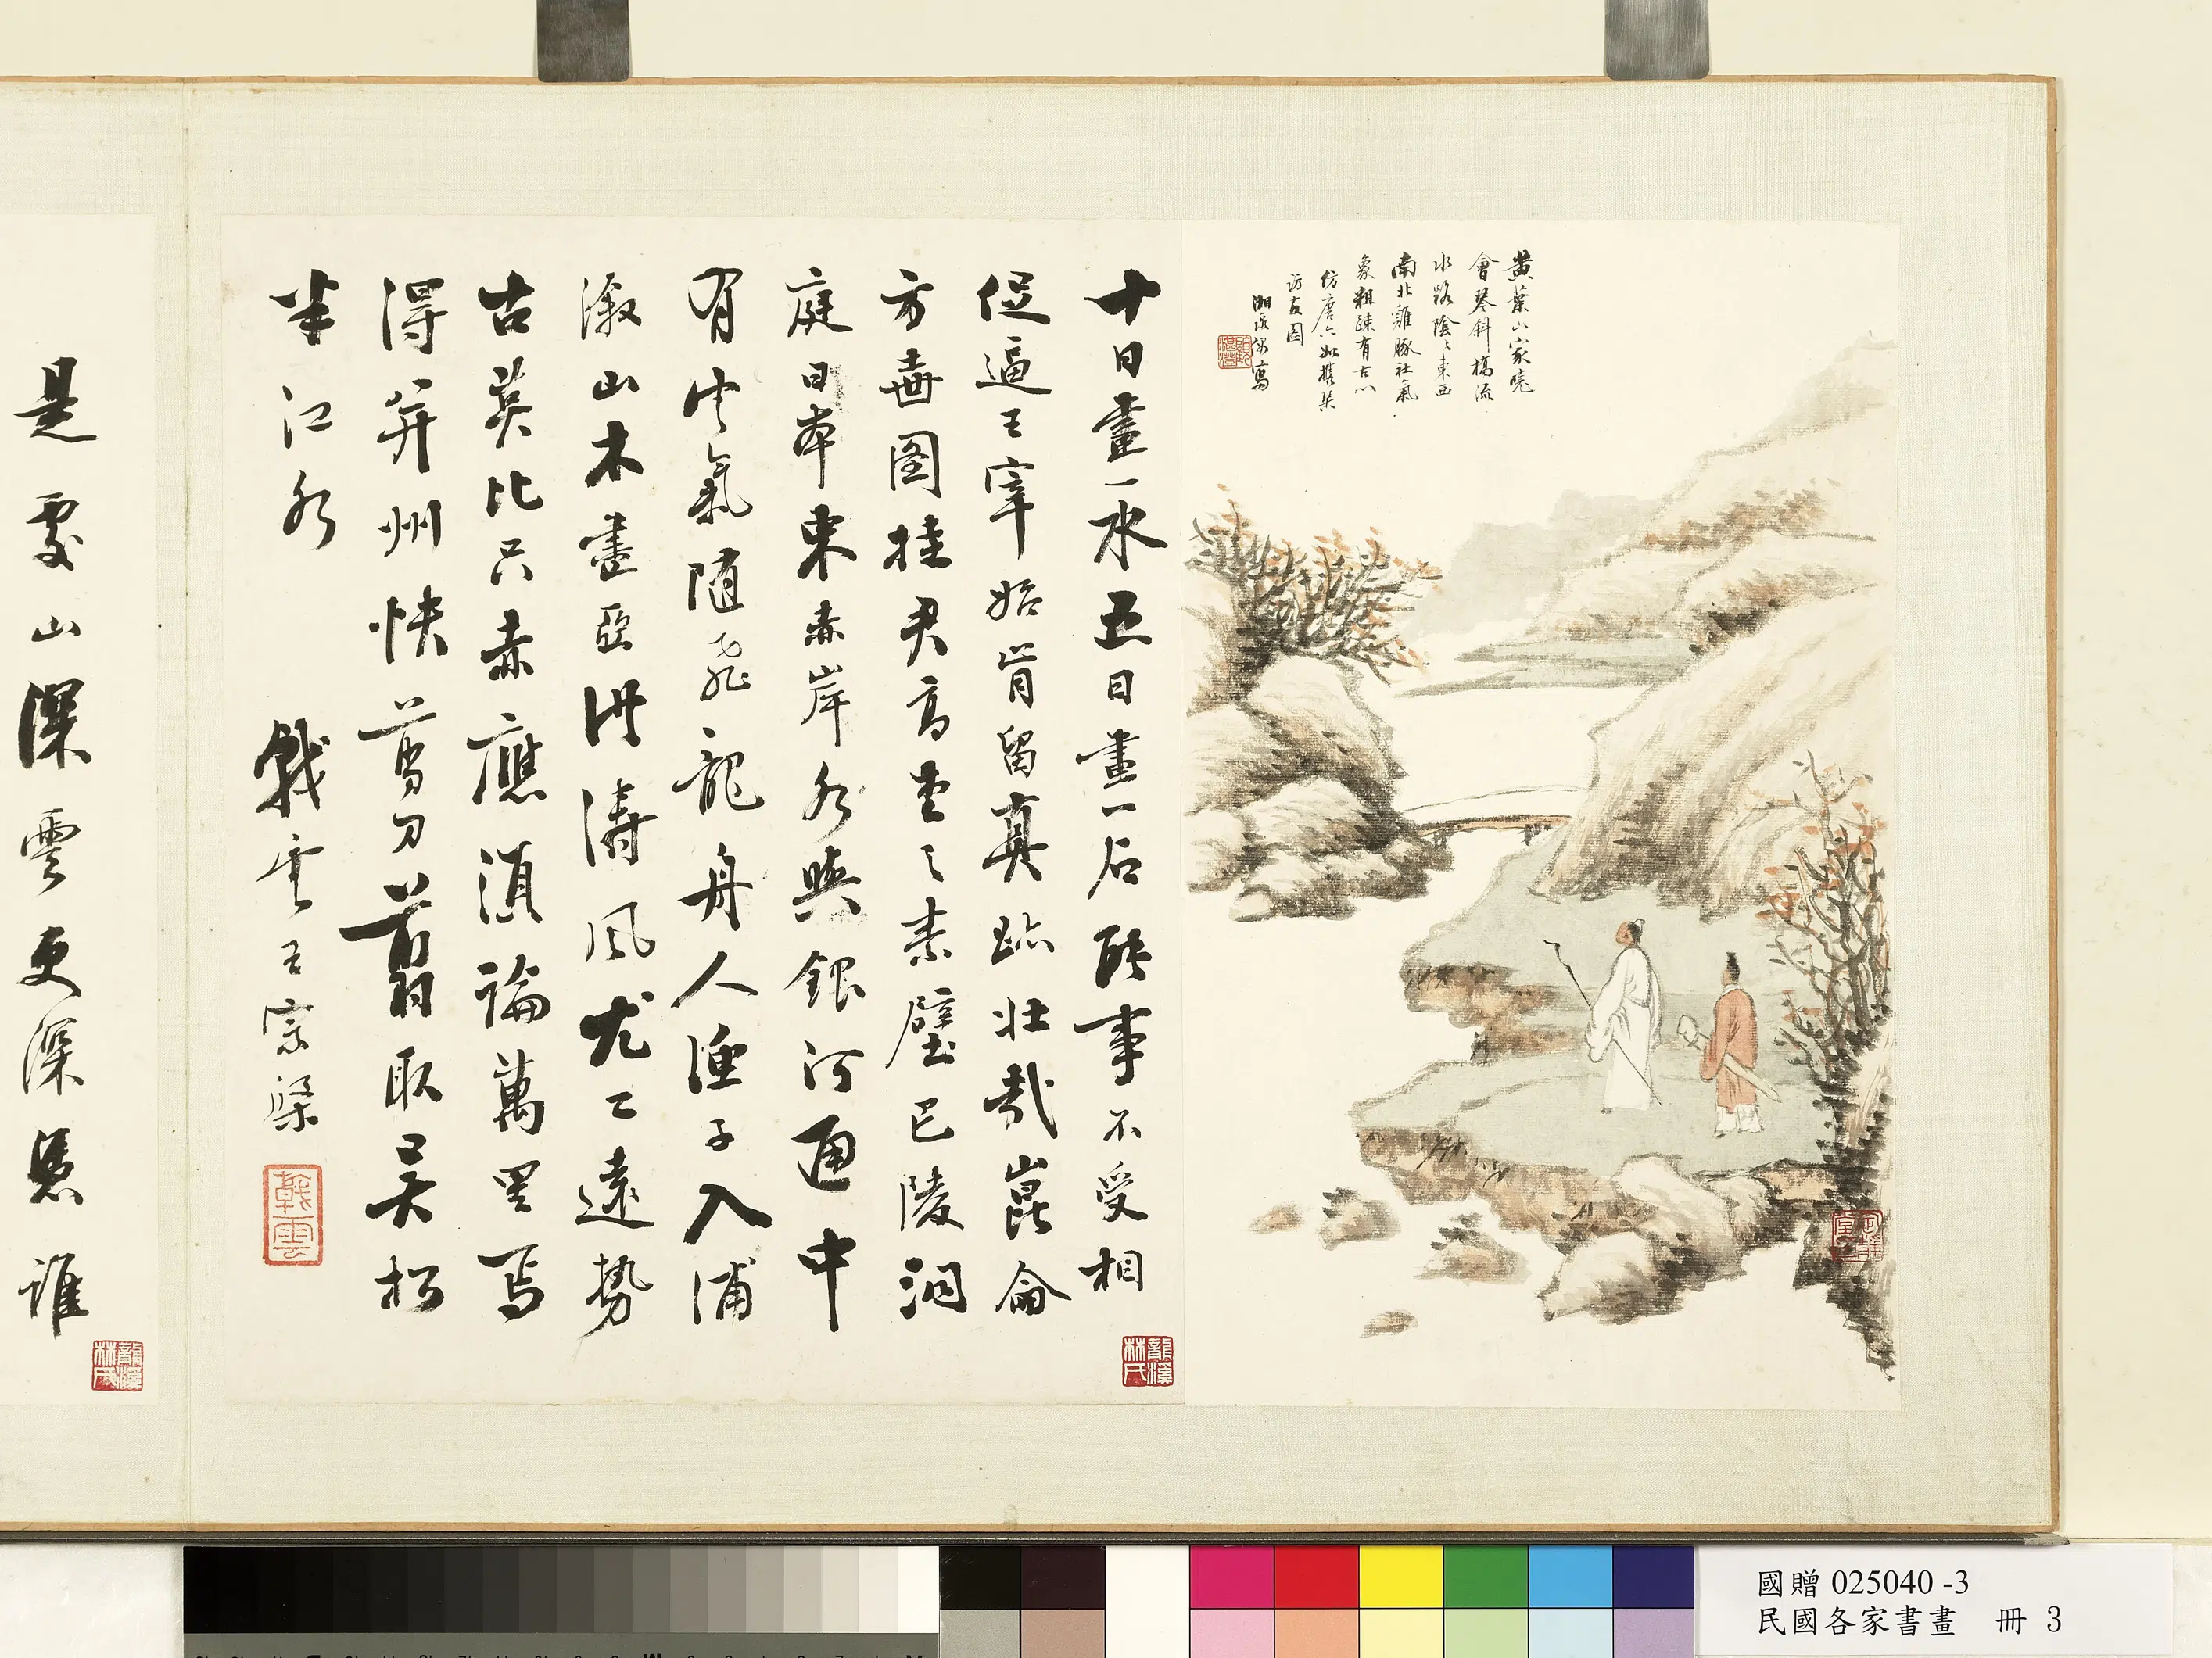 黃葉山家曉
會琴斜橋流
水路陰々東西
南北雞豚社氣
象粗疎有古心
仿唐六如攜琹
訪友圖
湘 寫
十日畫一水五日畫一石能事不受相
促逼王宰始肯留真跡壯哉崑崙
方壺圖挂君高堂之素壁巴陵洞
庭日本東赤岸水與銀河通中
有雲氣隨飛龍舟人漁子入浦
溆山木盡亞洪濤風尤工遠勢
古莫比只赤應須論萬里焉
得并州快剪刀翦取吳松
半江水 戟雲王宗梁
戟雲
龍溪林氏
是處山深雲更深憑誰
龍溪林氏
國贈 025040 -3
民國各家書畫 冊 3